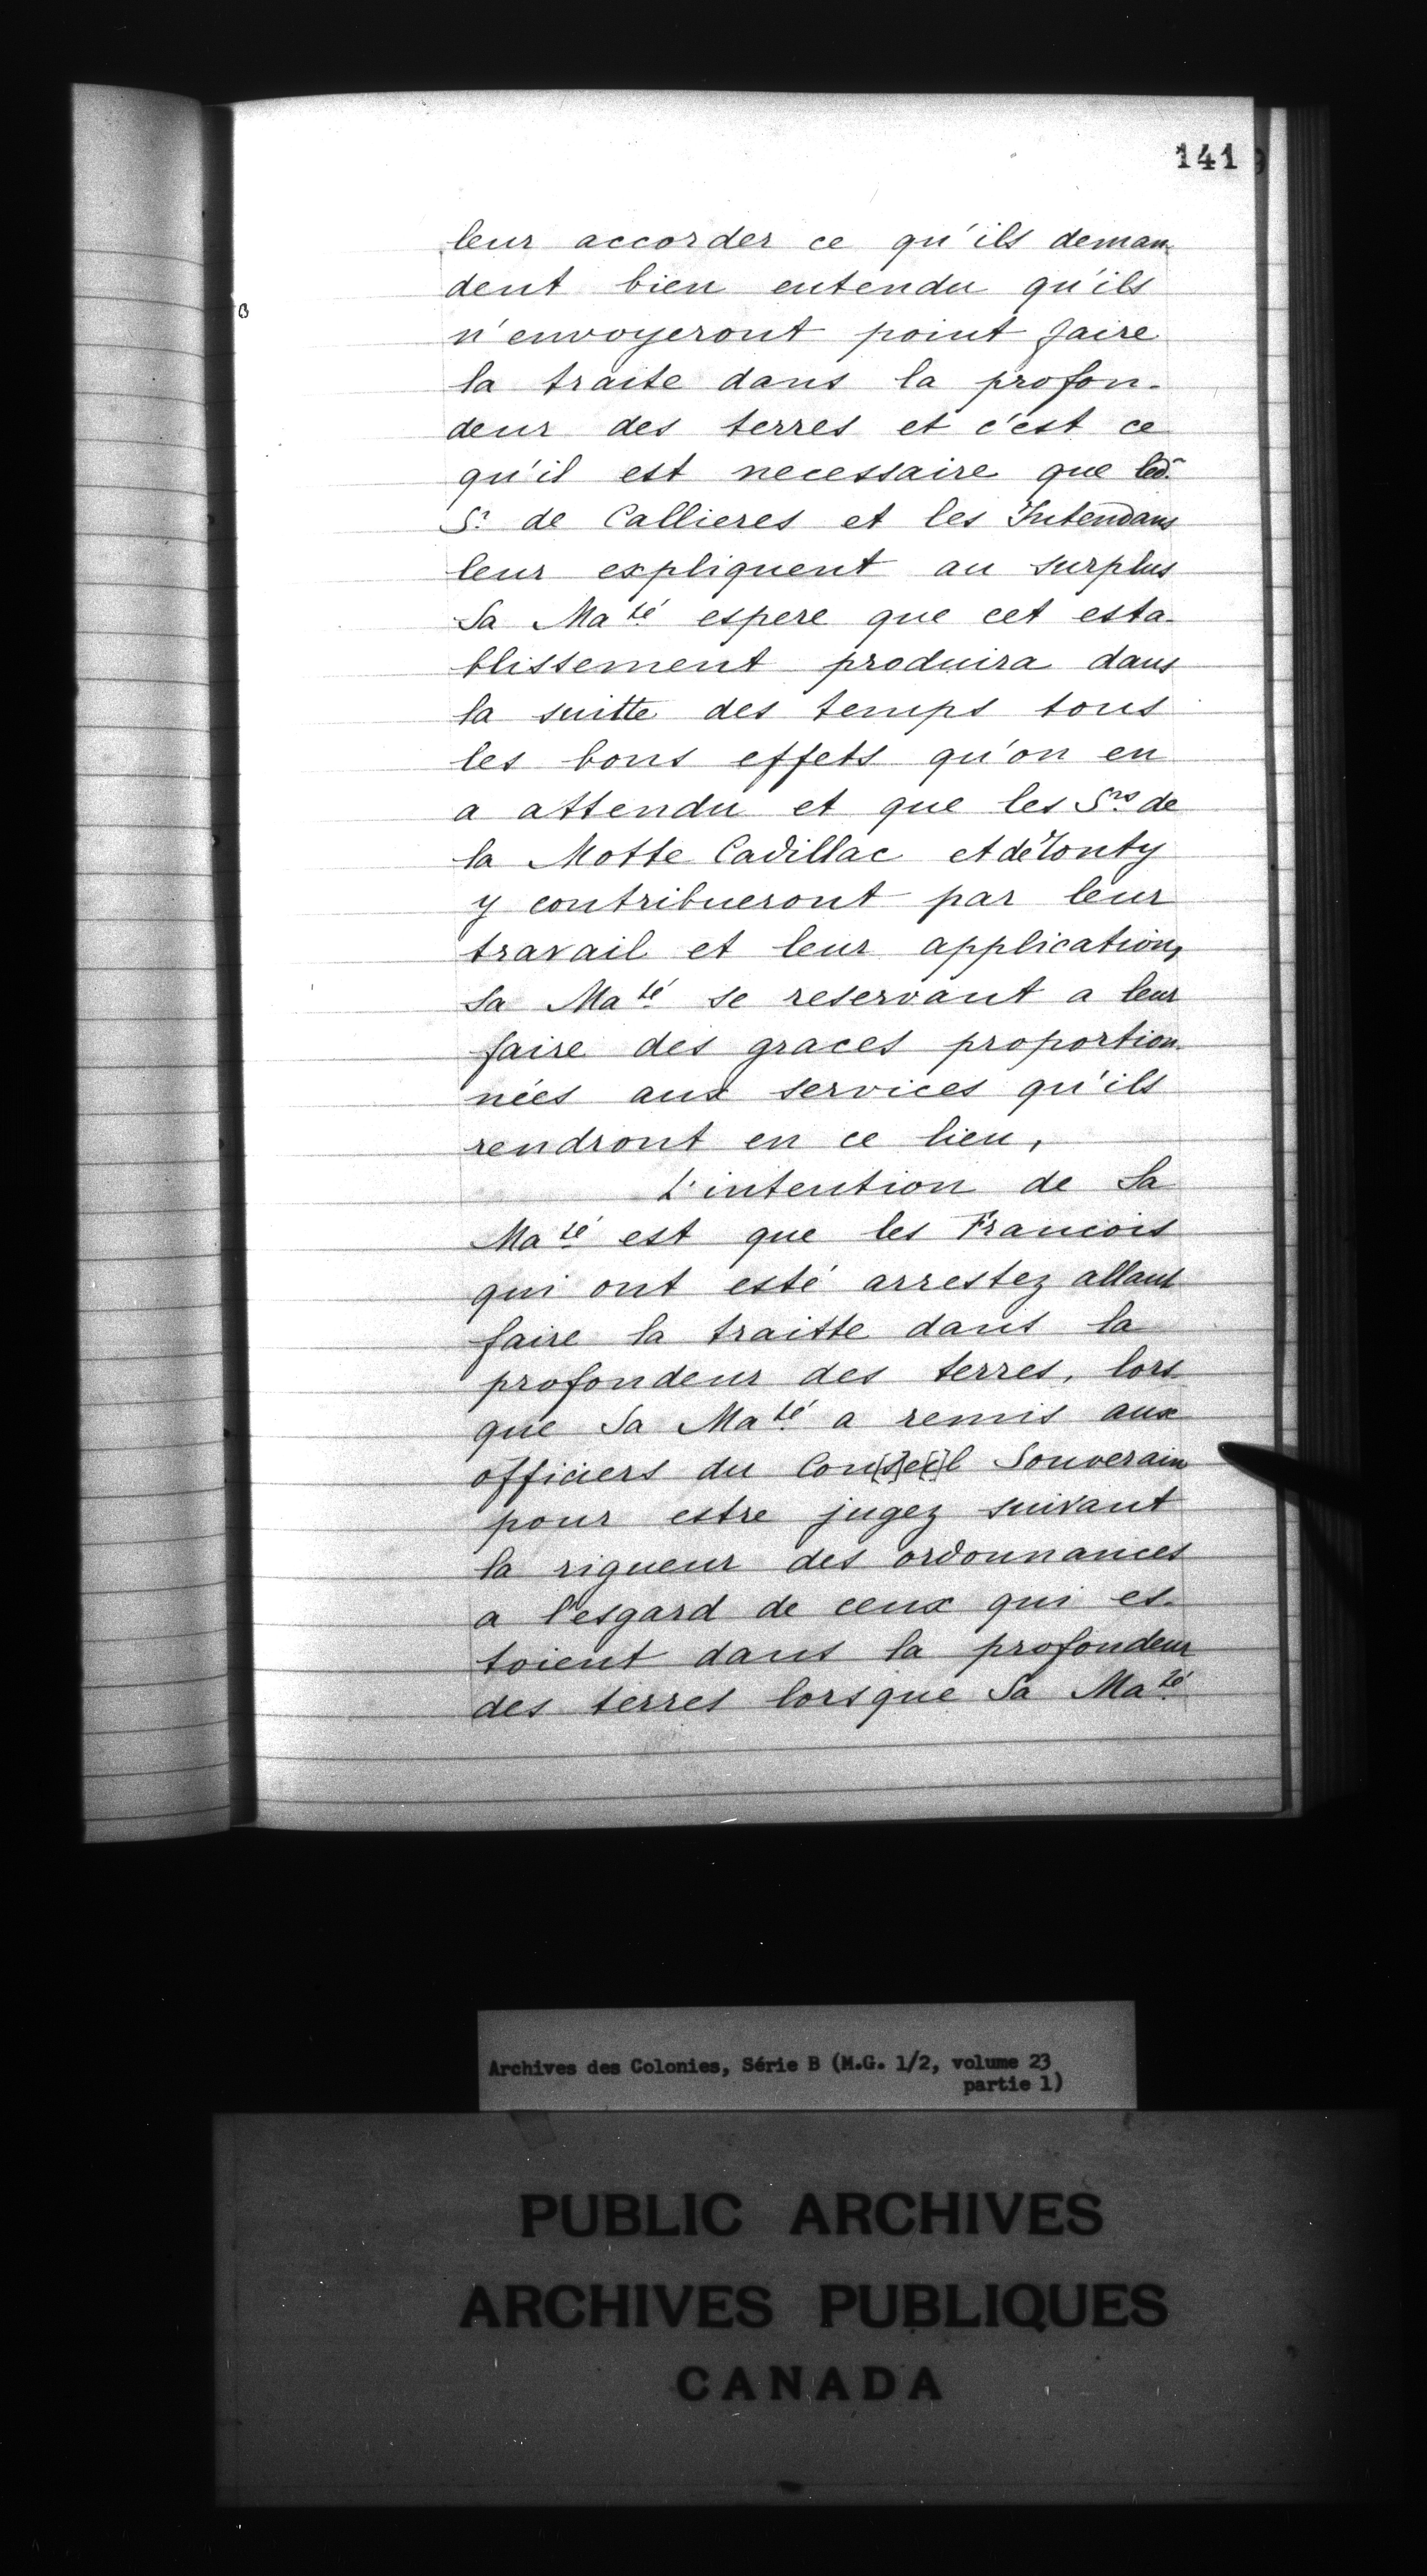 141
leur accorder ce qu'ils deman-
dent bien entendu qu'ils
n'envoyeront point faire
la traite dans la profon-
deur des terres et c'est ce
qu'il est necessaire que led.
Sr de Callieres et les Intendans
leur expliquent au surplus
Sa Maté espere que cet esta-
blissement produira dans
la suitte des temps tous
les bons effets qu'on en
a attendu et que les Srs de
la Motte Cadillac et de Tonty
y contribueront par leur
travail et leur application,
Sa Maté se reservant a leur
faire des graces proportion-
nées aux services qu'ils
rendront en ce lieu,
L'intention de Sa
Maté est que les Francois
qui ont esté arrestez allant
faire la traitte dans la
profondeur des terres, lors
que Sa Maté a remis aux
officiers du Con[s]e[i]l Souverain
pour estre jugez suivant
la rigueur des ordonnances
a l'esgard de ceux qui es-
toient dans la profondeur
des terres lorsque Sa Maté
Archives des Colonies, Série B (M.G. 1/2, volume 23
partie 1)
PUBLIC ARCHIVES
ARCHIVES PUBLIQUES
CANADA